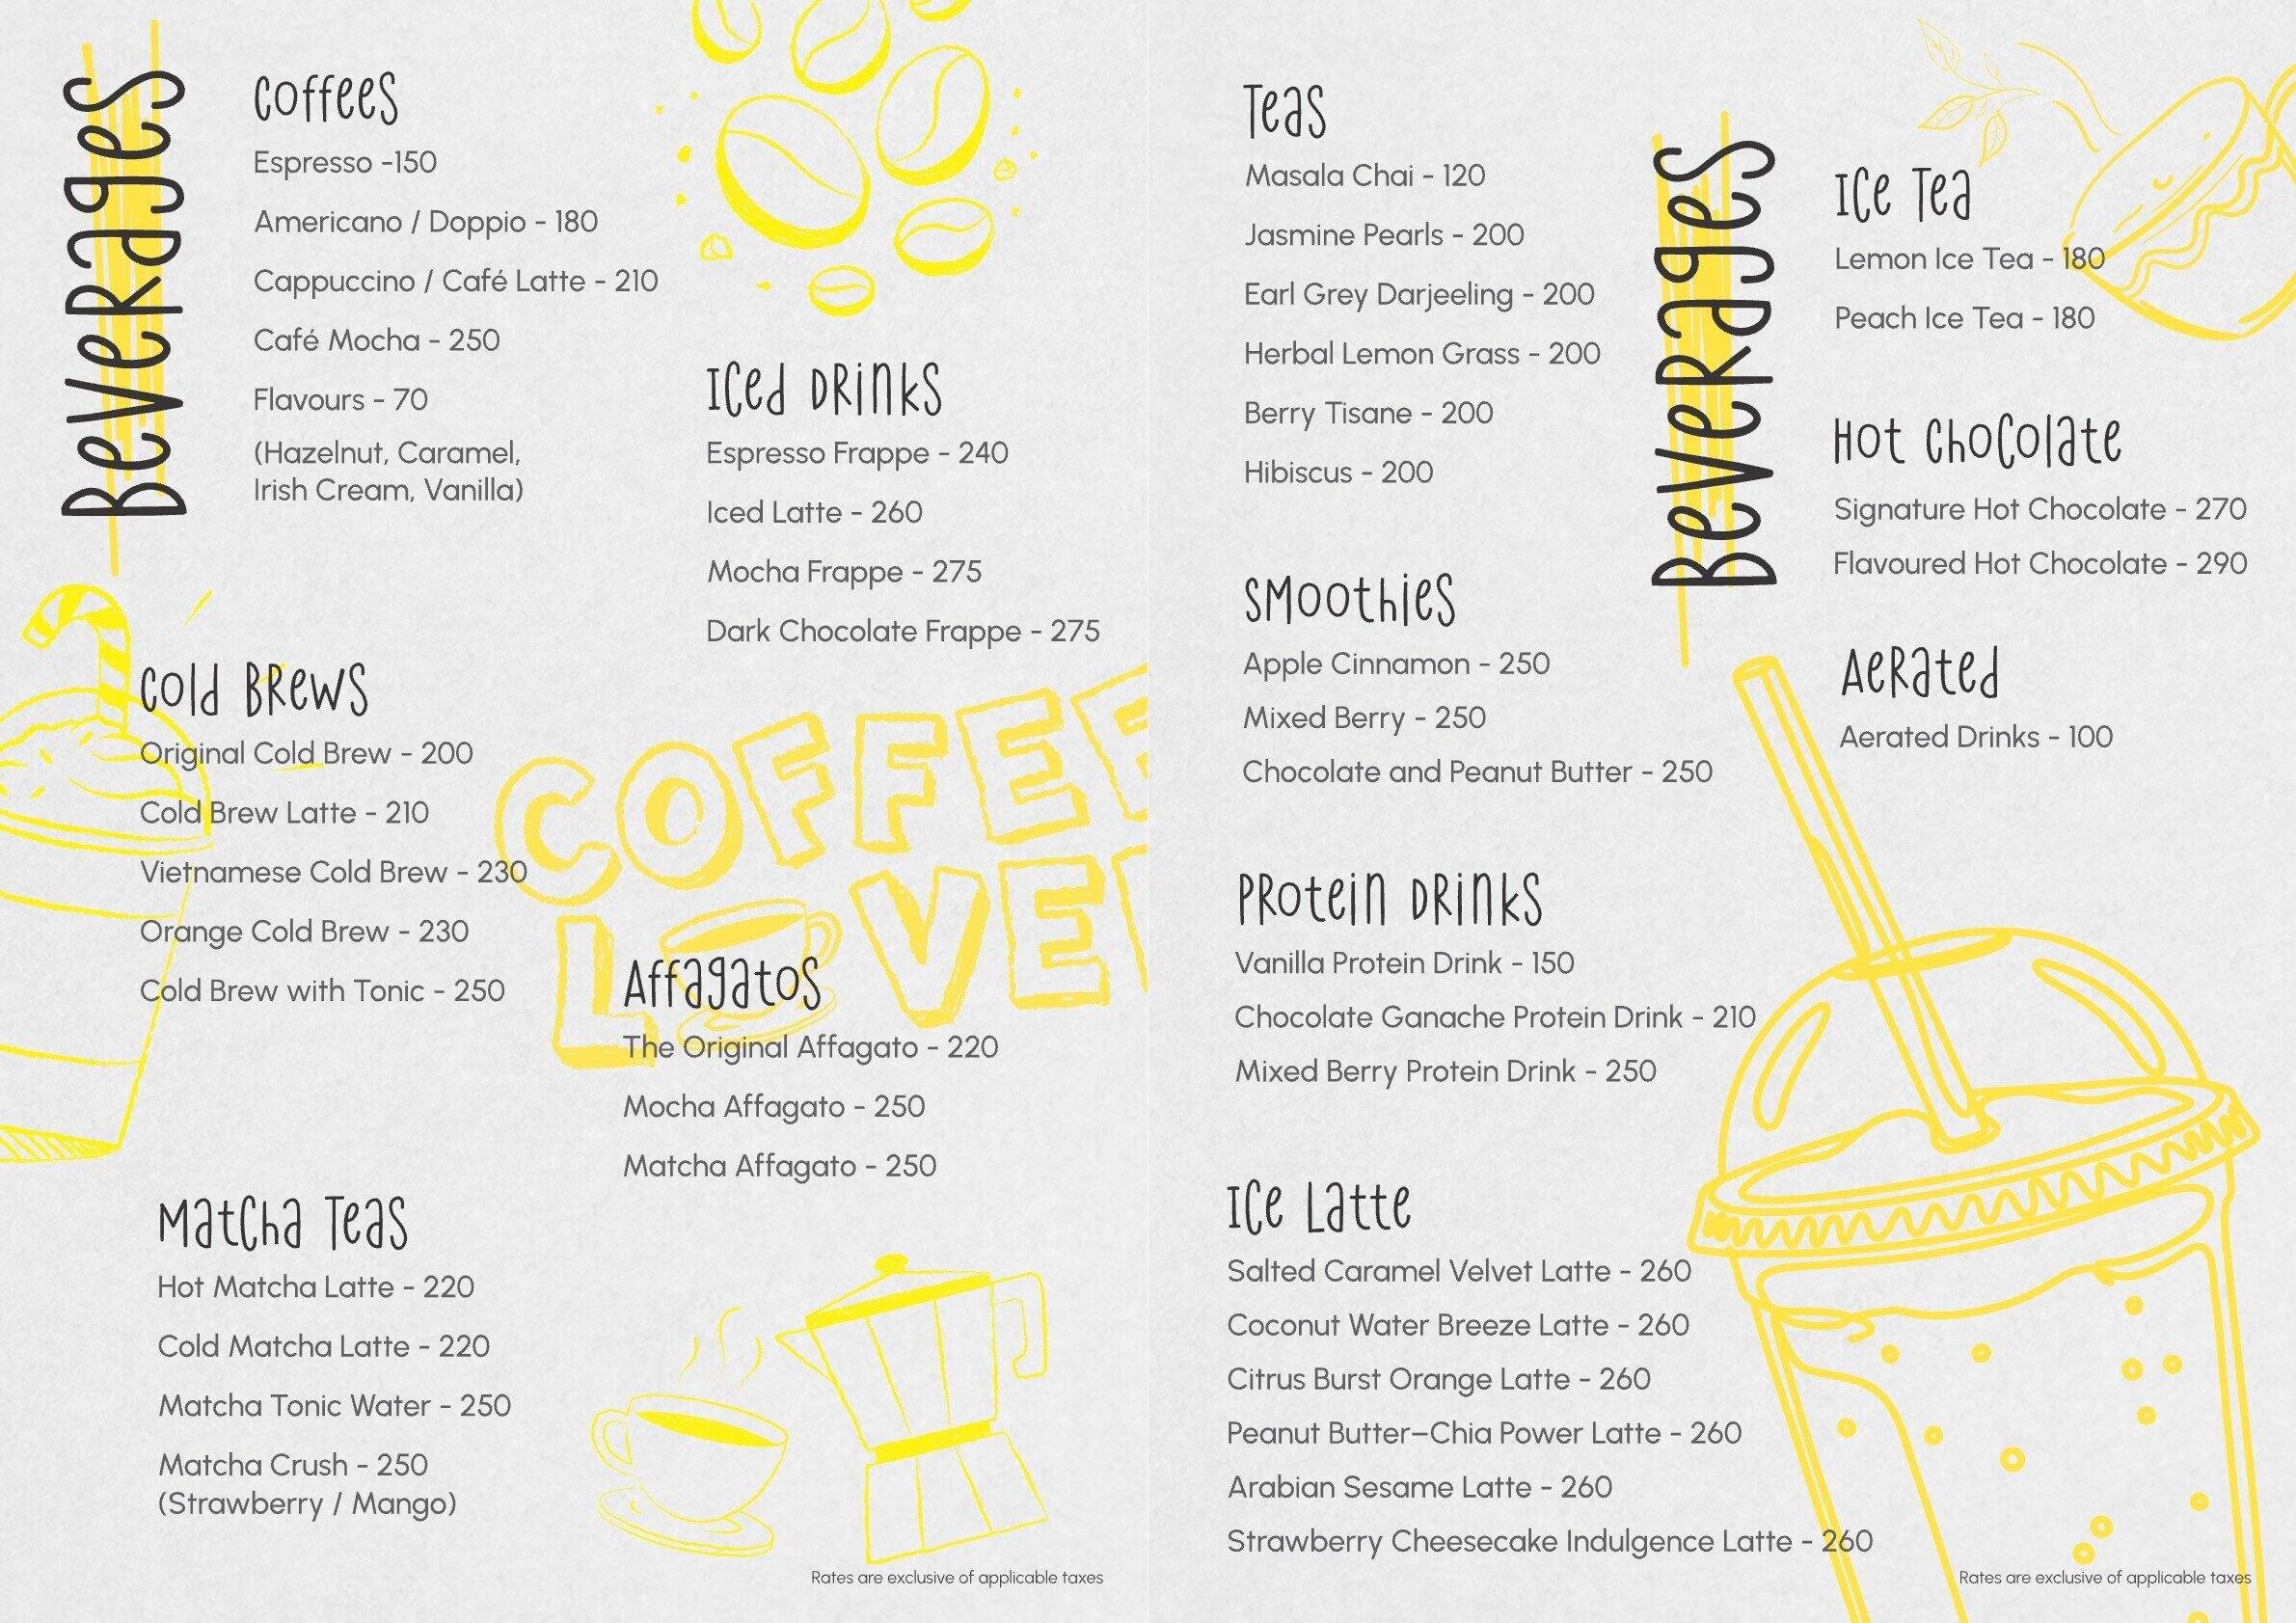 Beverages
Coffees
Espresso -150
Americano / Doppio - 180
Cappuccino / Café Latte - 210
Café Mocha - 250
Flavours - 70
(Hazelnut, Caramel,
Irish Cream, Vanilla)
Iced Drinks
Espresso Frappe - 240
Iced Latte - 260
Mocha Frappe - 275
Dark Chocolate Frappe - 275
Cold Brews
Original Cold Brew - 200
Cold Brew Latte - 210
Vietnamese Cold Brew - 230
Orange Cold Brew - 230
Cold Brew with Tonic - 250
COFFEE
LOVE
Affagatos
The Original Affagato - 220
Mocha Affagato - 250
Matcha Affagato - 250
Matcha Teas
Hot Matcha Latte - 220
Cold Matcha Latte - 220
Matcha Tonic Water - 250
Matcha Crush - 250
(Strawberry / Mango)
Rates are exclusive of applicable taxes
Teas
Masala Chai - 120
Jasmine Pearls - 200
Earl Grey Darjeeling - 200
Herbal Lemon Grass - 200
Berry Tisane - 200
Hibiscus - 200
Smoothies
Apple Cinnamon - 250
Mixed Berry - 250
Chocolate and Peanut Butter - 250
Protein Drinks
Vanilla Protein Drink - 150
Chocolate Ganache Protein Drink - 210
Mixed Berry Protein Drink - 250
Ice Latte
Salted Caramel Velvet Latte - 260
Coconut Water Breeze Latte - 260
Citrus Burst Orange Latte - 260
Peanut Butter–Chia Power Latte - 260
Arabian Sesame Latte - 260
Strawberry Cheesecake Indulgence Latte - 260
Beverages
Ice Tea
Lemon Ice Tea - 180
Peach Ice Tea - 180
Hot Chocolate
Signature Hot Chocolate - 270
Flavoured Hot Chocolate - 290
Aerated
Aerated Drinks - 100
Rates are exclusive of applicable taxes